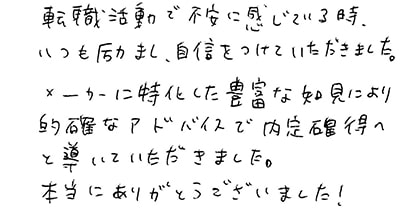 転職活動で不安に感じている時、
いつも励まし、自信をつけていただきました。
メーカーに特化した豊富な知見により
的確なアドバイスで内定確得へ
と導いていただきました。
本当にありがとうございました!